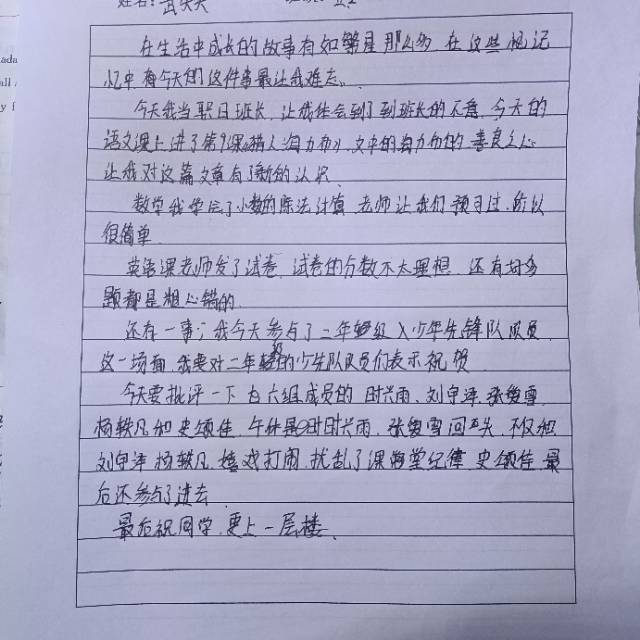 姓名:
ada
all
y f
在生活中成长的故事有如繁星那么多 在这些记
忆中 有今天的这件事最让我难忘。
今天我当职日班长,让我体会到了到班长的不意,今天的
语文课上讲了第9课《猎人海力布》,文中的海力布的善良之心
让我对这篇文章有了新的认识
数学我学会了小数的除法计算 老师让我们预习过,所以
很简单
英语课老师发了试卷,试卷的分数不太理想,还有好多
题都是粗心错的.
还有一事;我今天参与了二年级入少年先锋队队员
这一场面 我要对二年级的少先队队员们表示祝贺
今天要批评一下 六组成员的 时兴雨、刘宇泽、张雪
杨轶凡和史颂佳,午休时兴雨、张雪回头 不仅和
刘宇泽 杨轶凡 嬉戏打闹,扰乱了课堂纪律 史颂佳最
后还参与了进去
最后祝同学,更上一层楼.